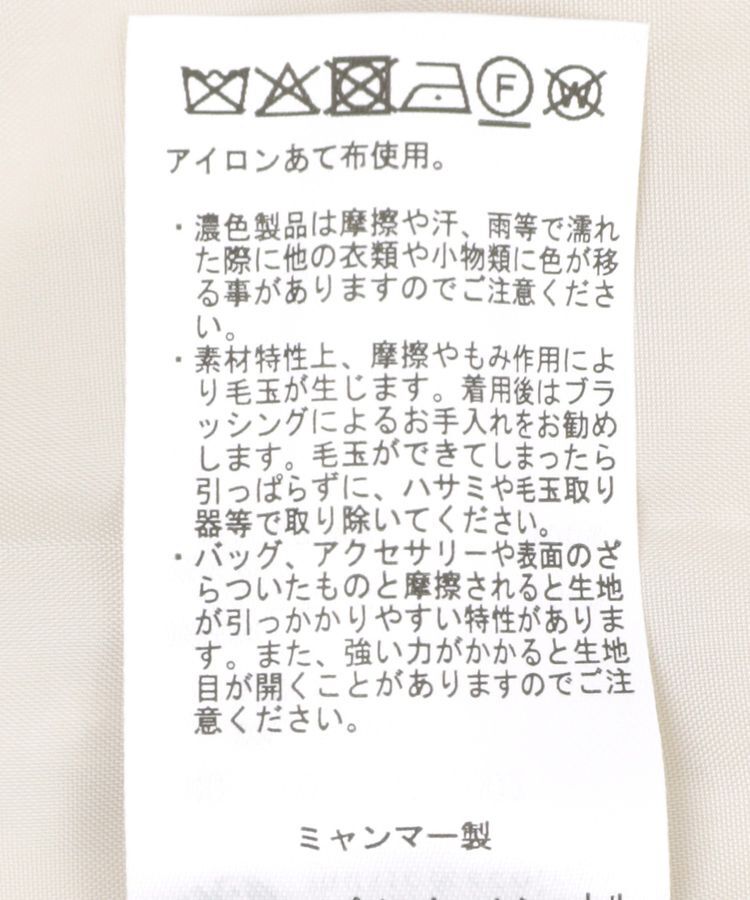 F W
アイロンあて布使用。
・濃色製品は摩擦や汗、雨等で濡れ
た際に他の衣類や小物類に色が移
る事がありますのでご注意くださ
い。
・素材特性上、摩擦やもみ作用によ
り毛玉が生じます。着用後はブラ
ッシングによるお手入れをお勧め
します。毛玉ができてしまったら
引っぱらずに、ハサミや毛玉取り
器等で取り除いてください。
・バッグ、アクセサリーや表面のざ
らついたものと摩擦されると生地
が引っかかりやすい特性がありま
す。また、強い力がかかると生地
目が開くことがありますのでご注
意ください。
ミャンマー製